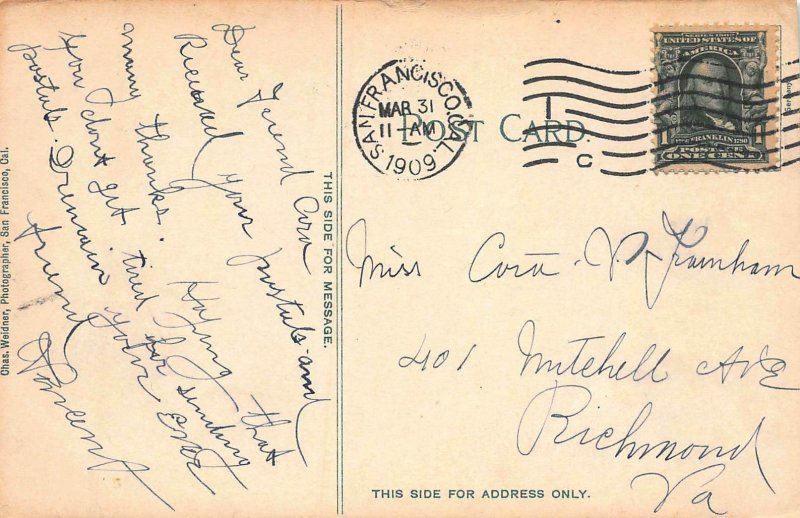 Dear Friend Cora
Received your postals and
many thanks. Hoping that
you dont get tired for sending
postals. I remain your Ever
friend
Vincent
Chas. Weidner, Photographer, San Francisco, Cal.
THIS SIDE FOR MESSAGE.
SAN FRANCISCO, CAL.
MAR 31
11 AM
1909
1
C
POST CARD.
SERIES 1902
UNITED STATES OF
AMERICA
FRANKLIN
POSTAGE
ONE CENT
Germany
Miss Cora V. Farnham
401 Mitchell Ave
Richmond
Va
THIS SIDE FOR ADDRESS ONLY.